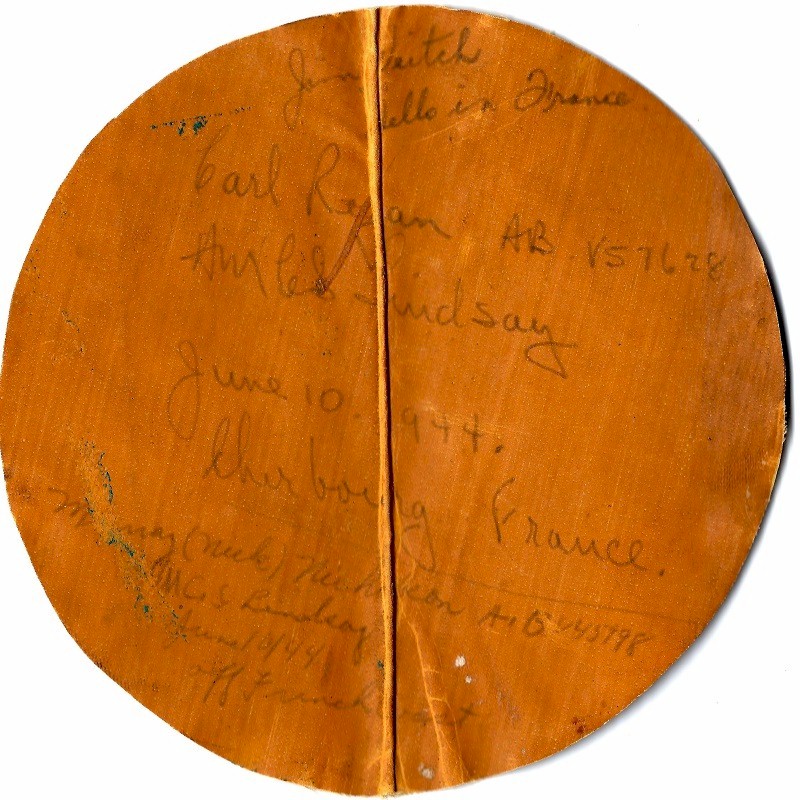 Jim
in France
Carl Regan AB V57628
HMCS Lindsay
June 10. 1944.
Cherbourg France.
Murray (Nick) Nicholson A.B V45798
HMCS Lindsay
June 10/44
off French Coast